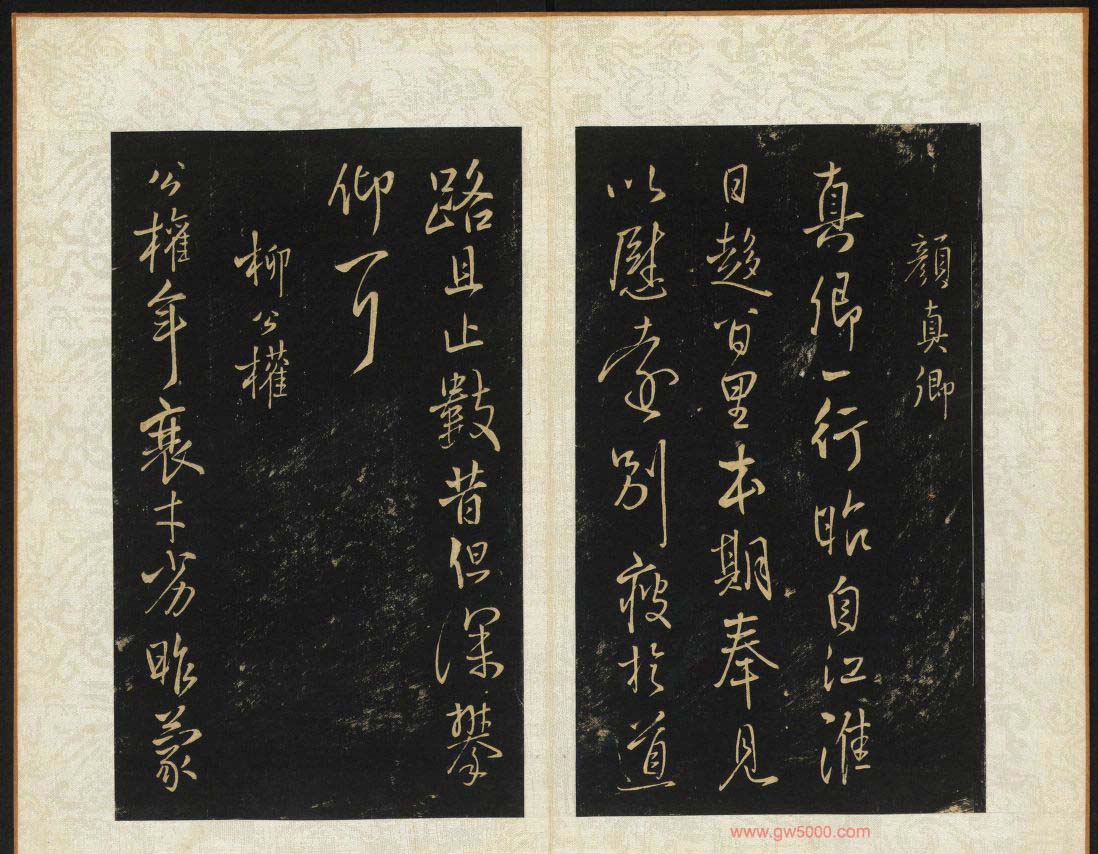 顔真卿
真卿一行自江淮
日趍百里本期奉見
以慰遠別疲於道
路且止昔但深攀
仰
柳公權
公權年衰才劣昨蒙
www.gw5000.com